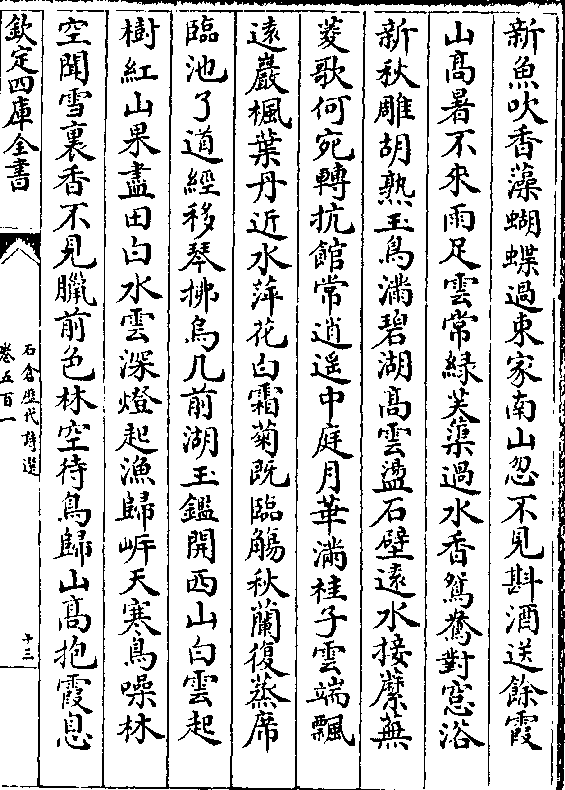 新魚吹香藻蝴蝶過東家南山忽不見斟酒送餘霞
山髙暑不來雨足雲常緑芙蕖過水香鴛鴦對窓浴
新秋雕胡熟玉鳥滿碧湖髙雲盪石壁遠水接蘼蕪
菱歌何宛轉抗館常逍遥中庭月華滿桂子雲端飄
逺巖楓葉丹近水萍花白霜菊既臨觴秋蘭復蒸席
臨池了道經移琴拂烏几前湖玉鑑開西山白雲起
樹紅山果盡田白水雲深燈起漁歸㟁天寒鳥噪林
空聞雪裏香不見臘前色林空待鳥歸山髙抱霞息
欽定四庫全書
石倉歴代詩選
卷五百一
十三